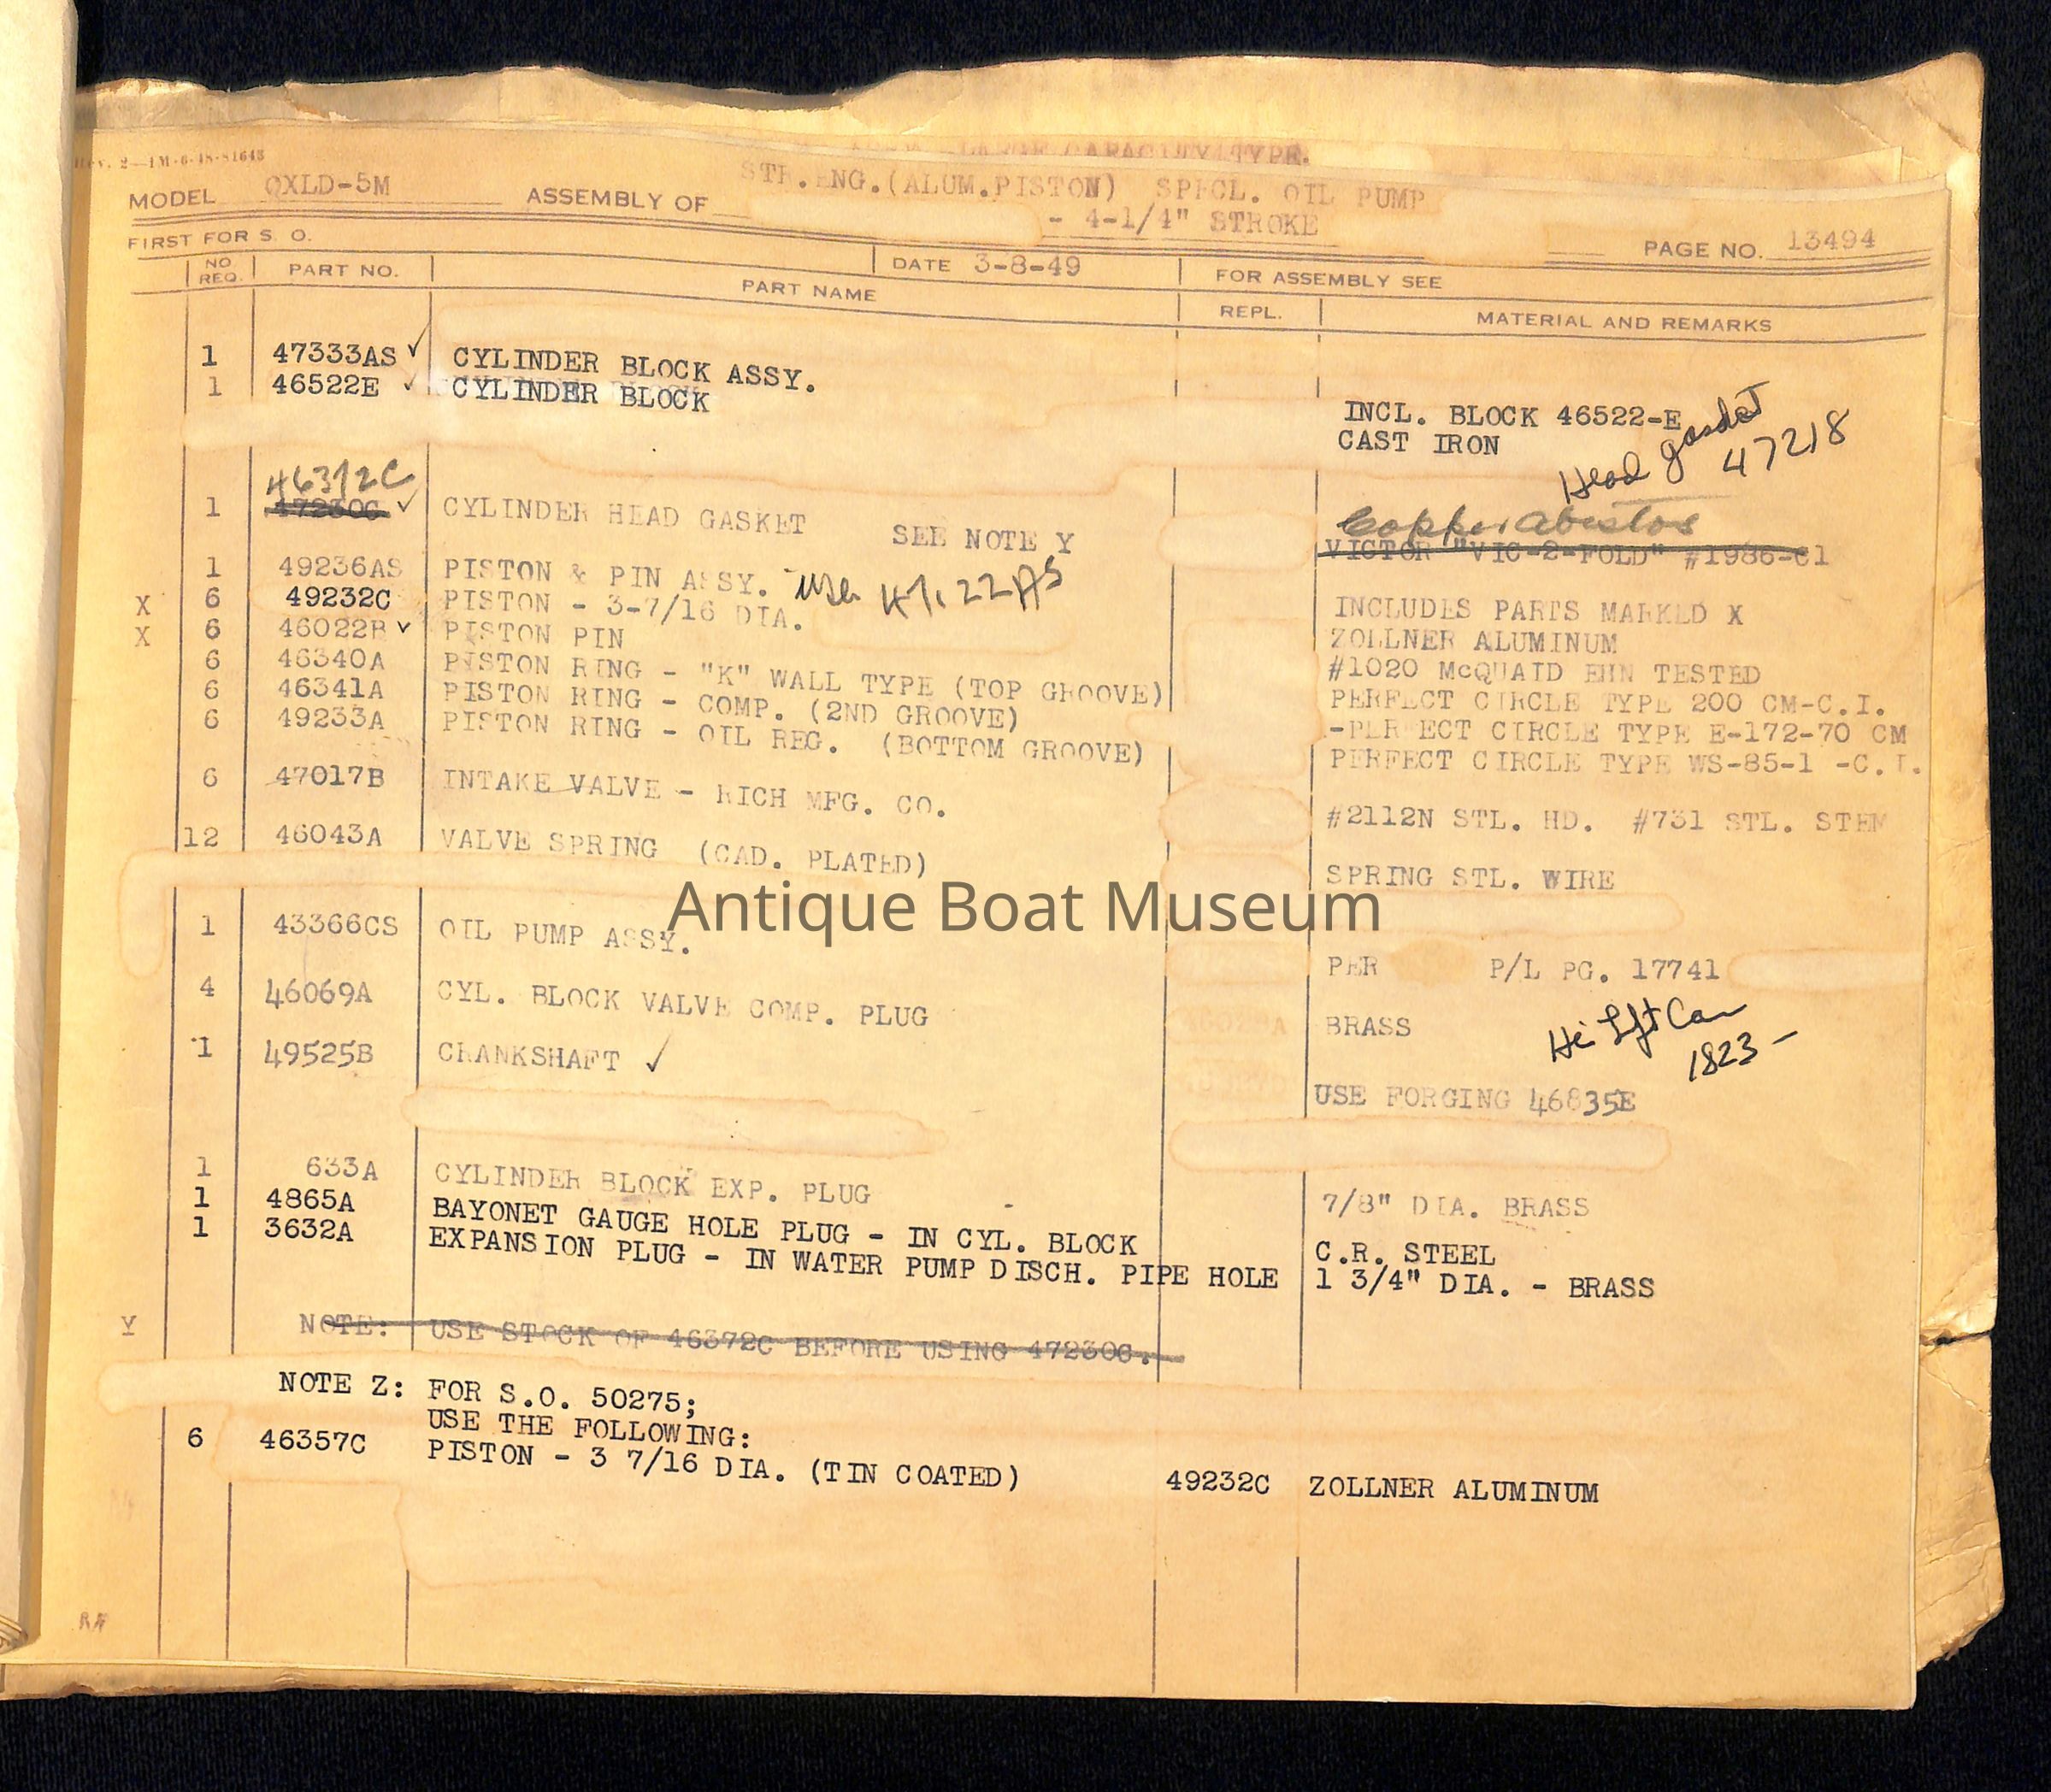 Rev. 2—1M-6-48-81643
LARGE CAPACITY TYPE.
MODEL QXLD-5M ASSEMBLY OF STR.ENG.(ALUM.PISTON) SPECL. OIL PUMP
- 4-1/4" STROKE
FIRST FOR S. O. PAGE NO. 13494
NO REQ. PART NO. DATE 3-8-49 FOR ASSEMBLY SEE
PART NAME REPL. MATERIAL AND REMARKS
1 47333AS ✓ CYLINDER BLOCK ASSY. INCL. BLOCK 46522-E
1 46522E ✓ CYLINDER BLOCK CAST IRON
Head gasket
47218
46372C
1 47230C ✓ CYLINDER HEAD GASKET SEE NOTE Y VICTOR "VIC-2-FOLD" #1986-C1
Copper Abestos
1 49236AS PISTON & PIN ASSY. INCLUDES PARTS MARKED X
Use
X 6 49232C PISTON - 3-7/16 DIA. ZOLLNER ALUMINUM
X 6 46022B ✓ PISTON PIN #1020 McQUAID EHN TESTED
6 46340A PISTON RING - "K" WALL TYPE (TOP GROOVE) PERFECT CIRCLE TYPE 200 CM-C.I.
6 46341A PISTON RING - COMP. (2ND GROOVE) -PERFECT CIRCLE TYPE E-172-70 CM
6 49233A PISTON RING - OIL REG. (BOTTOM GROOVE) PERFECT CIRCLE TYPE WS-85-1 -C.I.
6 47017B INTAKE VALVE - RICH MFG. CO. #2112N STL. HD. #731 STL. STEM
12 46043A VALVE SPRING (CAD. PLATED) SPRING STL. WIRE
Antique Boat Museum
1 43366CS OIL PUMP ASSY. PER P/L PG. 17741
4 46069A CYL. BLOCK VALVE COMP. PLUG BRASS
Hi Lift Cam
1823-
1 49525B CRANKSHAFT ✓ USE FORGING 46835E
1 633A CYLINDER BLOCK EXP. PLUG 7/8" DIA. BRASS
1 4865A BAYONET GAUGE HOLE PLUG - IN CYL. BLOCK C.R. STEEL
1 3632A EXPANSION PLUG - IN WATER PUMP DISCH. PIPE HOLE 1 3/4" DIA. - BRASS
Y NOTE: USE STOCK OF 46372C BEFORE USING 47230C.
NOTE Z: FOR S.O. 50275;
USE THE FOLLOWING:
6 46357C PISTON - 3 7/16 DIA. (TIN COATED) 49232C ZOLLNER ALUMINUM